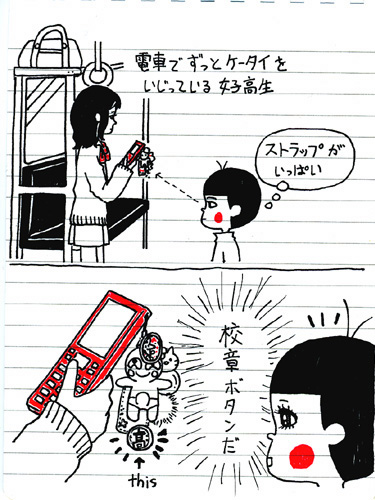 電車でずっとケータイを
いじっている女子高生
ストラップが
いっぱい
校章ボタンだ
高
this